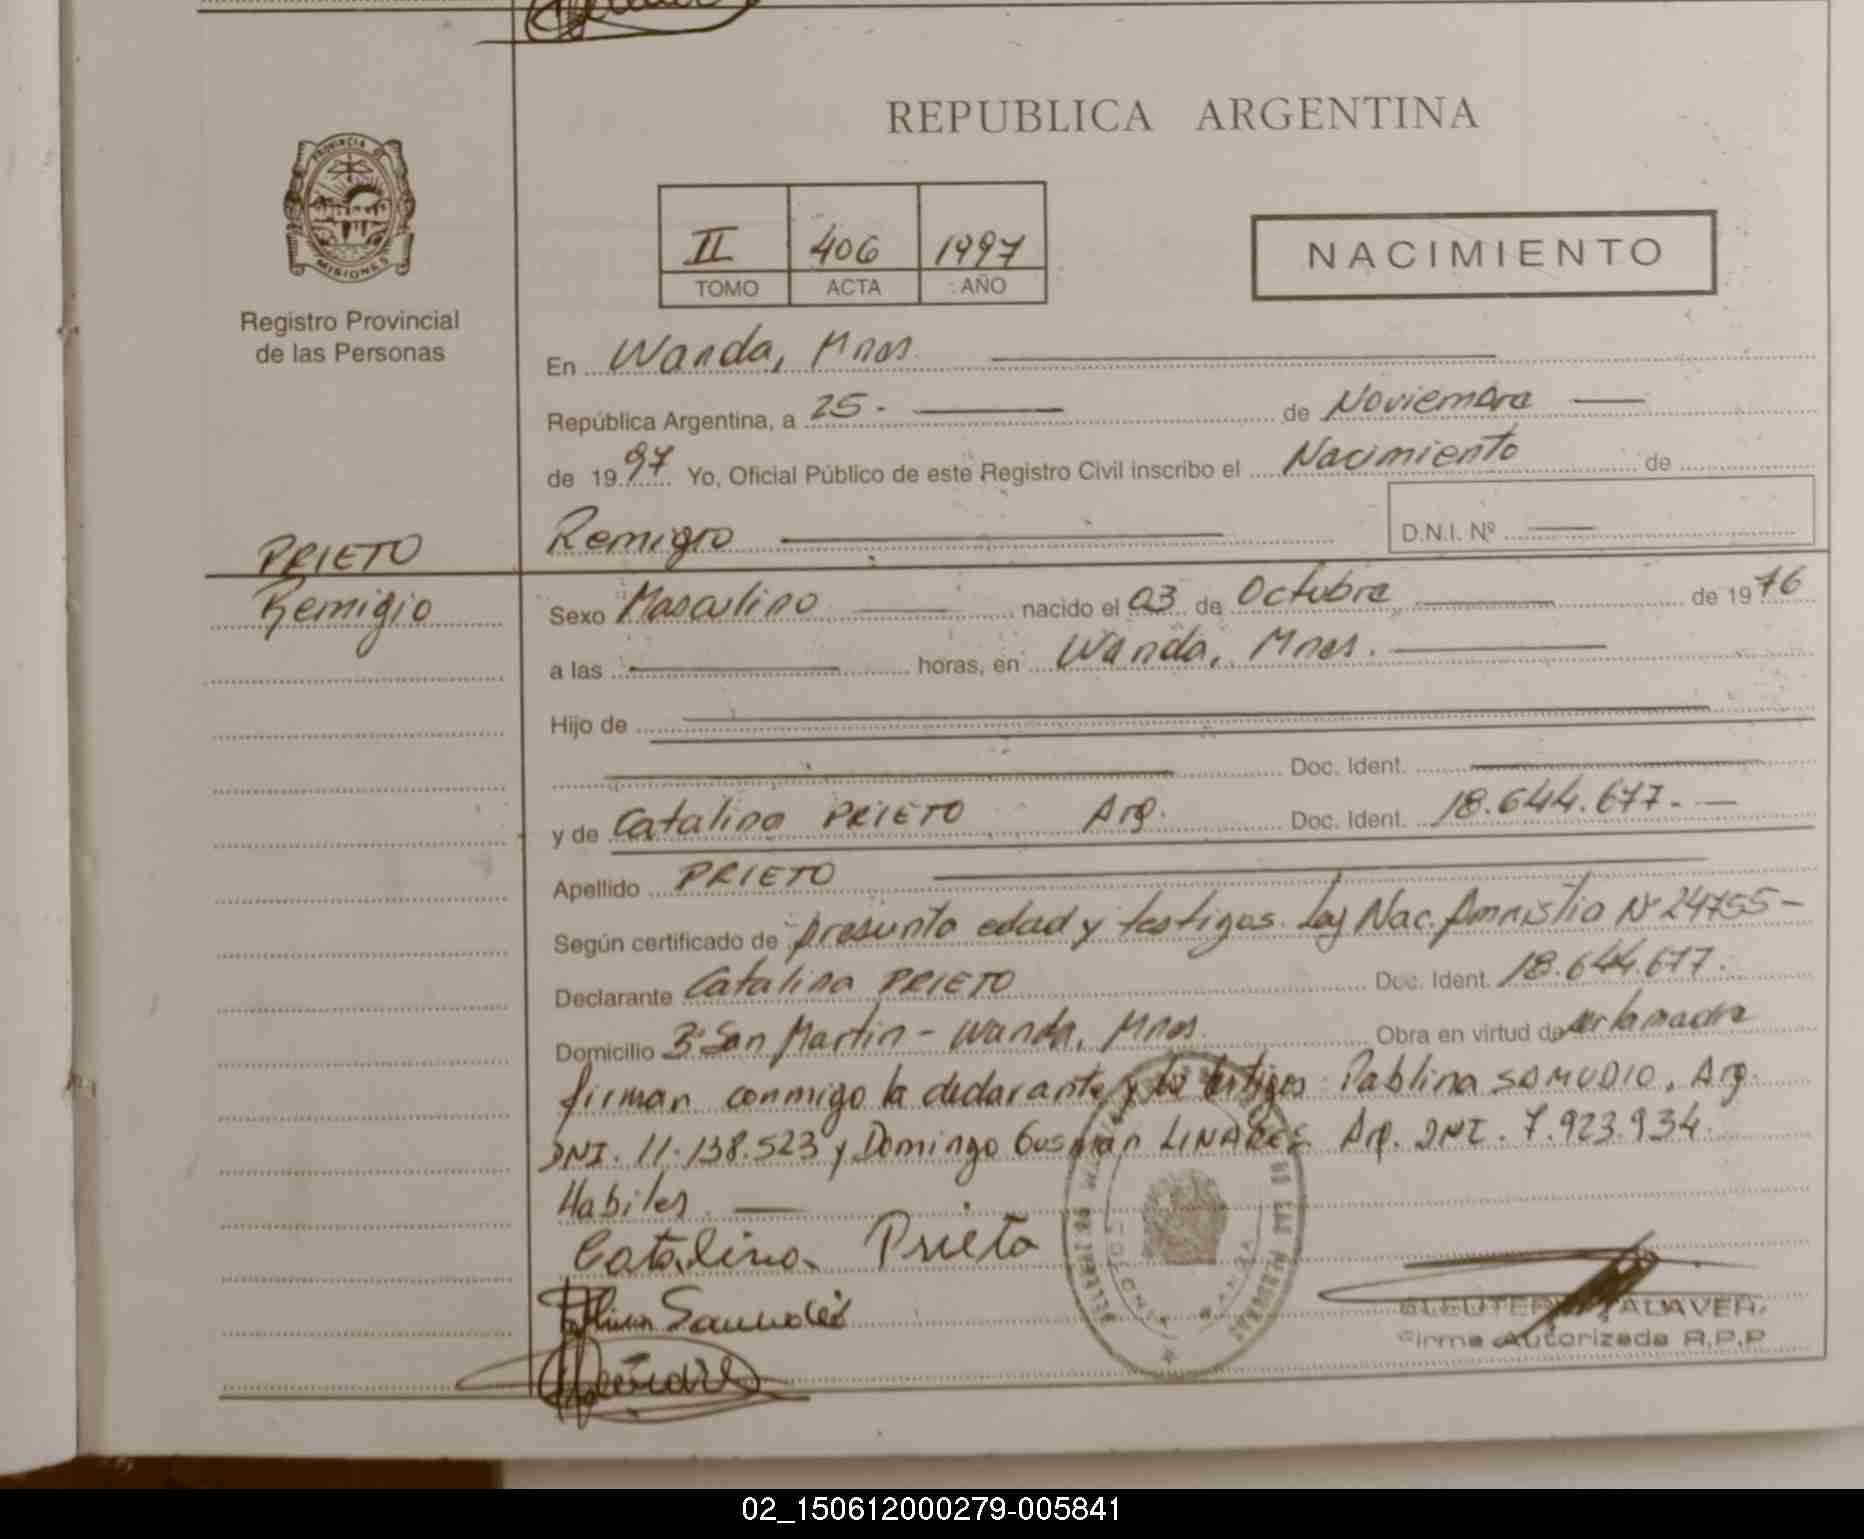 REPUBLICA ARGENTINA
PROVINCIA DE
MISIONES
Registro Provincial
de las Personas
II 406 1997
TOMO ACTA AÑO
NACIMIENTO
En Wanda, Mnes.
República Argentina, a 25 - de Noviembre
de 1997 Yo, Oficial Público de este Registro Civil inscribo el Nacimiento de
Remigio D.N.I. Nº
PRIETO
Remigio
Sexo Masculino nacido el 03 de Octubre de 1976
a las horas, en Wanda, Mnes.
Hijo de
Doc. Ident.
y de Catalina PRIETO Arg. Doc. Ident. 18.644.677.-
Apellido PRIETO
Según certificado de presunta edad y testigos. Ley Nac. Amnistia Nº 24755-
Declarante Catalina PRIETO Doc. Ident. 18.644.677.
Domicilio Bº San Martin - Wanda, Mnes. Obra en virtud de ser la madre
firman conmigo la declarante y los testigos: Pablina SAMUDIO, Arg.
DNI. 11.138.523 y Domingo Gusman LINARES Arg. DNI. 7.923.934.
Habiles.
Catalina Prieto
Samudio
Firma Autorizada R.P.P
02_150612000279-005841